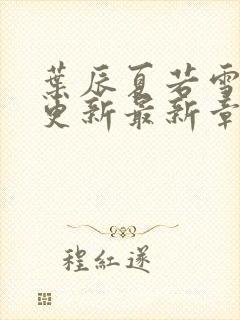 葉辰夏若雪
更新最新章
程紅遂